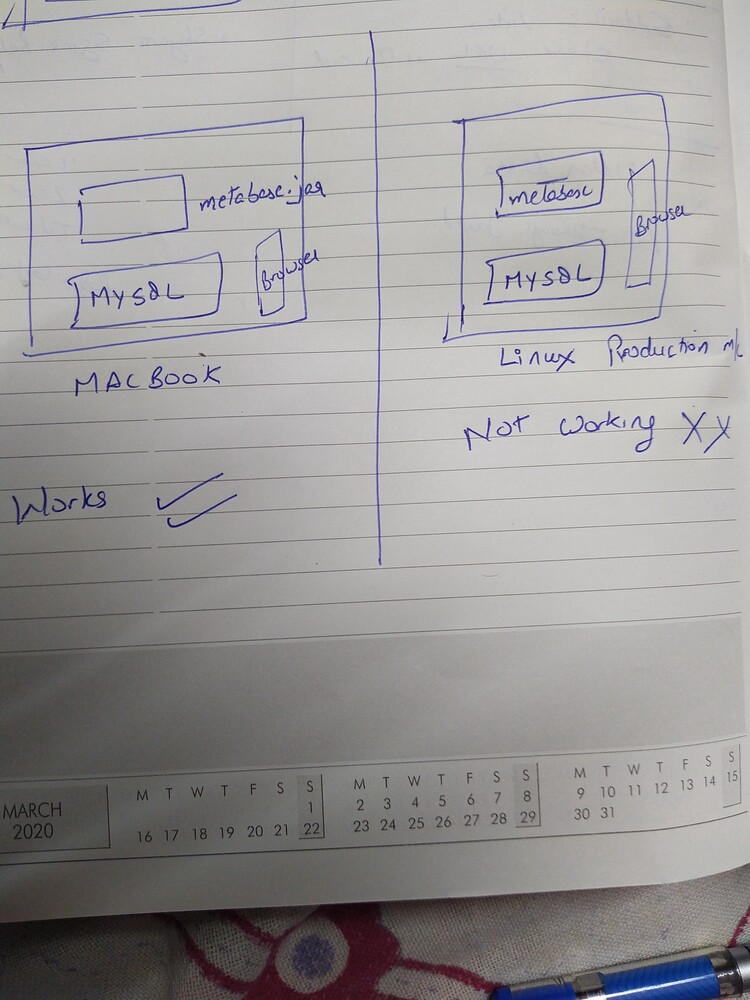 metabase.jar
MYSQL
Browser
MACBOOK
Works
metabase
MYSQL
Browser
Linux Production m/c
Not working XX
MARCH
2020
M T W T F S S
1
16 17 18 19 20 21 22
M T W T F S S
2 3 4 5 6 7 8
23 24 25 26 27 28 29
M T W T F S S
9 10 11 12 13 14 15
30 31